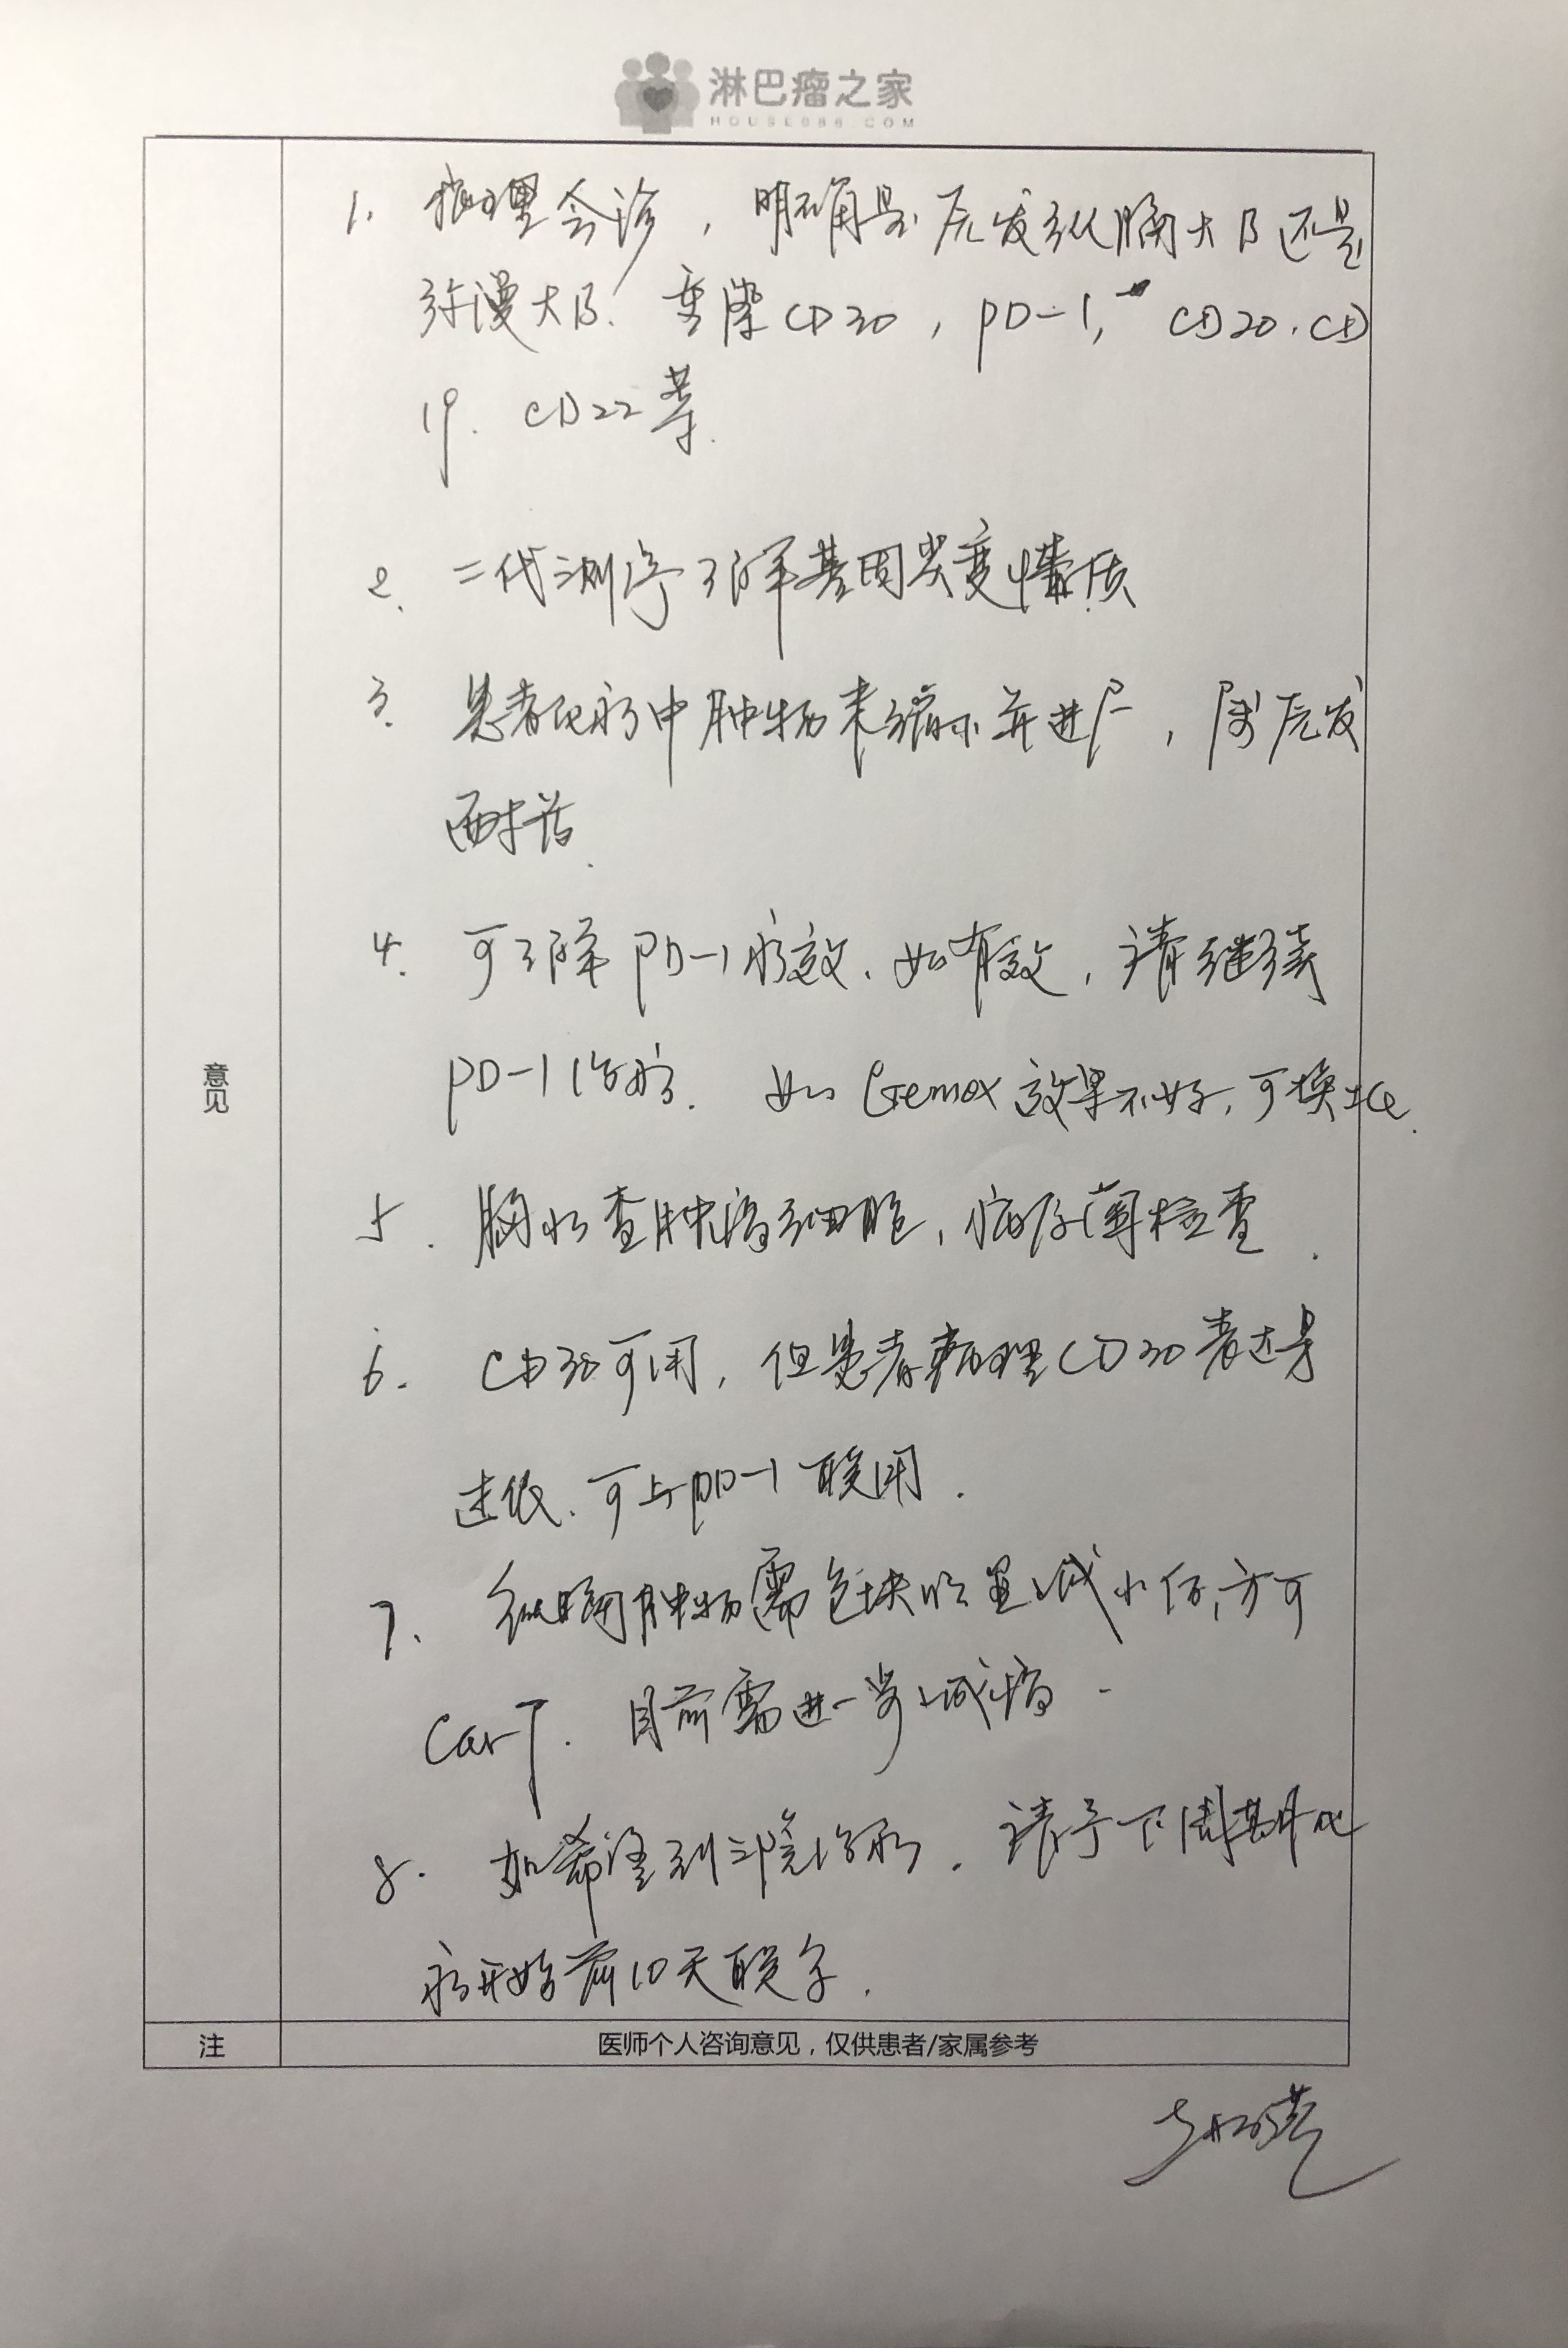 淋巴瘤之家
HOUSE086.COM
1. 病理会诊，明确是原发纵膈大B还是
弥漫大B. 重染CD30，PD-1, CD20. CD
19. CD22等.
2. 二代测序了解基因突变情况
3. 患者化疗中肿物未缩小并进展，属原发
耐药.
4. 可了解PD-1疗效. 如有效，请继续
PD-1治疗. 如Gemox效果不好，可换ICE.
5. 胸水查肿瘤细胞，病原菌检查.
6. CD30可用，但患者病理CD30表达是
过低. 可与PD-1联用.
7. 纵膈肿物需包块明显减小后，方可
CarT. 目前需进一步减瘤.
8. 如希望到我院治疗. 请于下周期化
疗开始前10天联系.
意见
注
医师个人咨询意见，仅供患者/家属参考